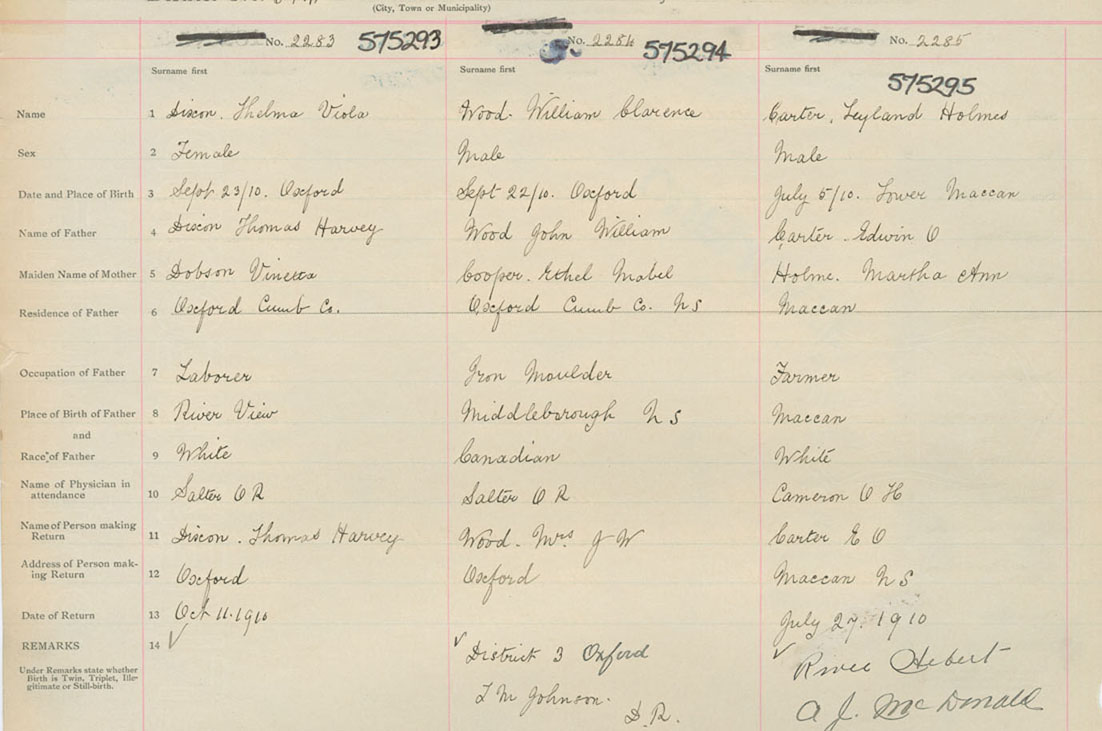 (City, Town or Municipality)
No. 2283 575293 No. 2284 575294 No. 2285
575295
Surname first Surname first Surname first
Name 1 Dixon. Thelma Viola Wood. William Clarence Carter, Leyland Holmes
Sex 2 Female Male Male
Date and Place of Birth 3 Sept 23/10. Oxford Sept 22/10. Oxford July 5/10. Lower Maccan
Name of Father 4 Dixon Thomas Harvey Wood John William Carter. Edwin O
Maiden Name of Mother 5 Dobson Vinetta Cooper. Ethel Mabel Holme. Martha Ann
Residence of Father 6 Oxford Cumb Co. Oxford Cumb Co. NS Maccan
Occupation of Father 7 Laborer Iron Moulder Farmer
Place of Birth of Father 8 River View Middleborough NS Maccan
and
Race of Father 9 White Canadian White
Name of Physician in
attendance 10 Salter O R Salter O R Cameron O H
Name of Person making
Return 11 Dixon. Thomas Harvey Wood. Mrs J W Carter E O
Address of Person mak-
ing Return 12 Oxford Oxford Maccan NS
Date of Return 13 Oct 11.1910 July 27.1910
REMARKS 14 District 3 Oxford Hebert
Under Remarks state whether
Birth is Twin, Triplet, Ille-
gitimate or Still-birth.
Johnson. D.R. A J. McDonald